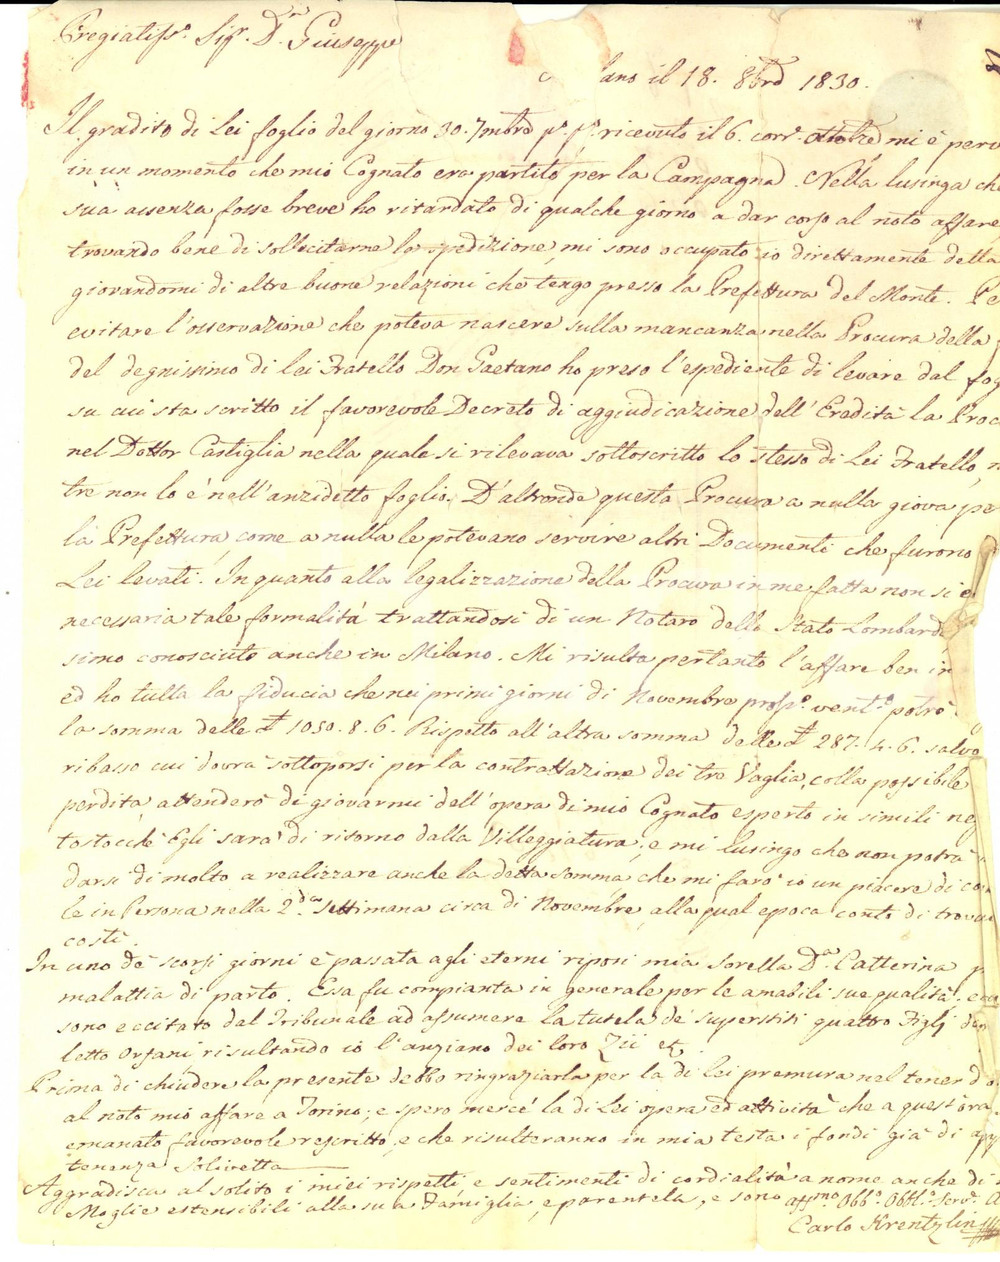 Pregiatiss.º Sig.r D.n Giuseppe
lano il 18. 8brd 1830.
Il gradito di Lei foglio del giorno 30. 7mbre p.º p.º ricevuto il 6. corr.e ottobre mi è perv
in un momento che mio Cognato era partito per la Campagna. Nella lusinga che
sua assenza fosse breve ho ritardato di qualche giorno a dar corso al noto affare
trovando bene di sollicitarne la spedizione, mi sono occupato io direttamente della
giovandomi di altre buone relazioni che tengo presso la Prefettura del Monte. Pe
evitare l'osservazione che poteva nascere sulla mancanza nella Procura della
del degnissimo di lei Fratello Don Gaetano ho preso l'espediente di levare dal fog
su cui sta scritto il favorevole Decreto di aggiudicazione dell'Eredità la Proc
nel Dottor Castiglia nella quale si rilevava sottoscritto lo stesso di Lei Fratello,
tre non lo è nell'anzidetto foglio. D'altronde questa Procura a nulla giova pe
la Prefettura, come a nulla le potevano servire altri Documenti che furono
Lei levati. In quanto alla legalizzazione della Procura in me fatta non si è
necessaria tale formalità trattandosi di un Notaro dello Stato Lombard
simo conosciuto anche in Milano. Mi risulta pertanto l'affare ben in
ed ho tutta la fiducia che nei primi giorni di Novembre pross.º vent.º potrò
la somma delle £ 1050. 8. 6. Rispetto all'altra somma delle £ 287. 4. 6. salvo
ribasso cui dovrà sottoporsi per la contrattazione dei tre Vaglia, colla possibile
perdita, attenderò di giovarmi dell'opera di mio Cognato esperto in simili neg
tostocchè Egli sarà di ritorno dalla Villeggiatura; e mi lusingo che non potrà
darsi di molto a realizzare anche la detta somma che mi farò io un piacere di co
le in Persona nella 2.da Settimana circa di Novembre, alla qual epoca conto di trova
costì.
In uno de' scorsi giorni è passata agli eterni riposi mia Sorella D.a Catterina p
malattia di parto. Essa fu compianta in generale per le amabili sue qualità.
sono eccitato dal Tribunale ad assumere la tutela de' superstiti quattro Figlj
letto Orfani risultando io l'anziano dei loro Zii &.
Prima di chiudere la presente debbo ringraziarla per la di lei premura nel tener d
al noto mio affare a Torino; e spero mercè la di Lei opera ed attività che a quest'ora
emanato favorevole rescritto, e che risulteranno in mia testa i fondi già di app
tenenza Soliretta
Aggradisca al solito i miei rispetti e sentimenti di cordialità a nome anche di
Moglie estensibili alla sua Famiglia, e parentela, e sono aff.mo Obb.º Obbl.º Serv.e A
Carlo Krentzlin